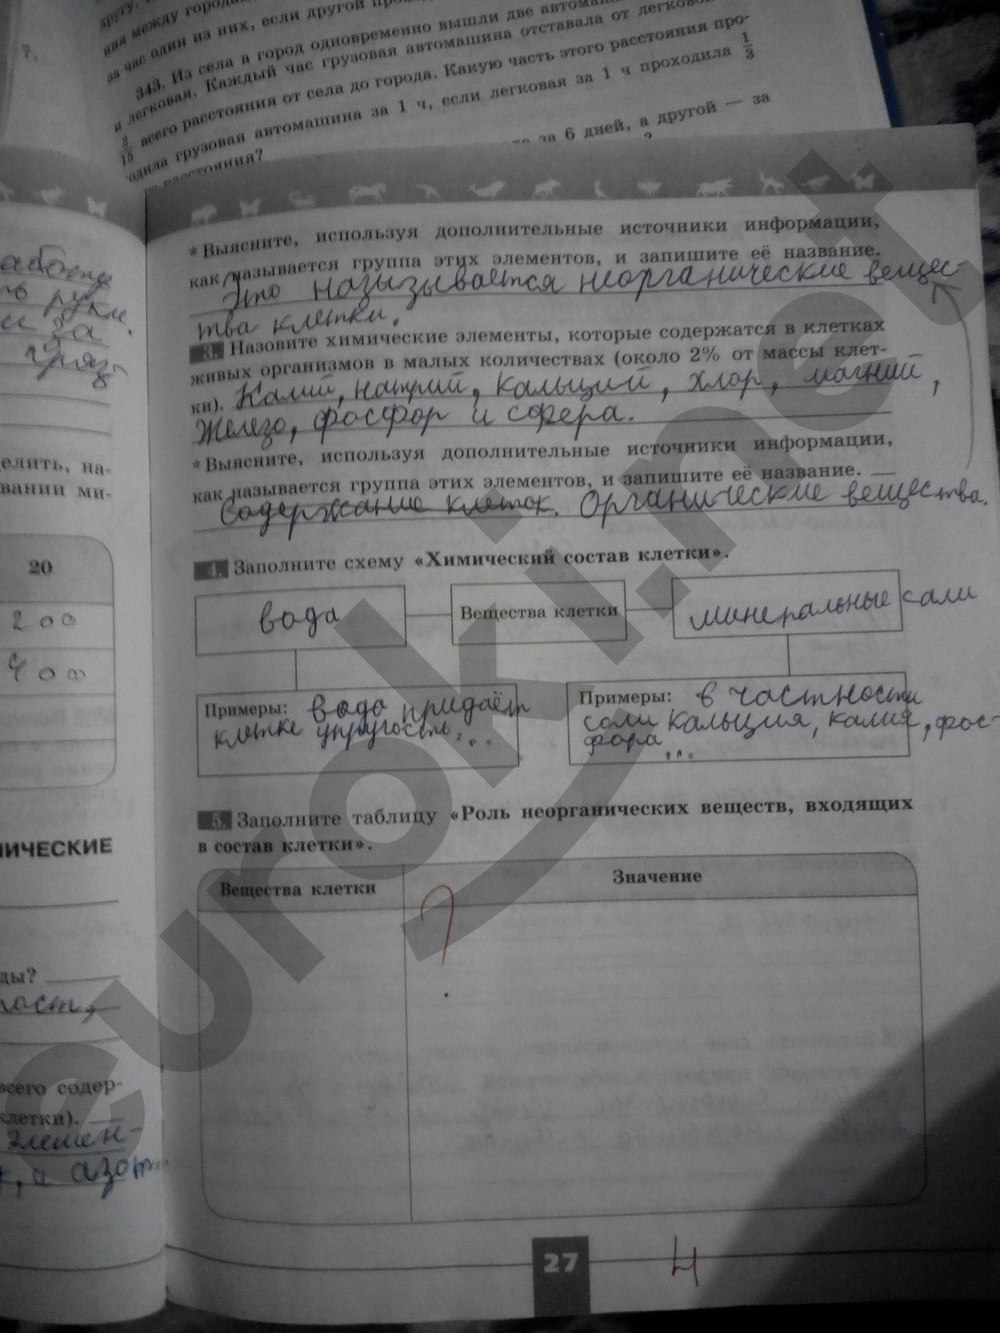 другу,
ния между города
за час один из них, если другой
7.
343. Из села в город одновременно вышли две автомаш
и легковая. Каждый час грузовая автомашина отставала от легков
2/15 всего расстояния от села до города. Какую часть этого расстояния про-
одила грузовая автомашина за 1 ч, если легковая за 1 ч проходила 1/3
расстояния?
за 6 дней, а другой — за
* Выясните, используя дополнительные источники информации,
как называется группа этих элементов, и запишите её название.
Это называзывается неорганические вещес-
тва клетки.
3. Назовите химические элементы, которые содержатся в клетках
живых организмов в малых количествах (около 2% от массы клет-
ки). Калий, натрий, кальций, хлор, магний,
Железо, фосфор и сфера.
* Выясните, используя дополнительные источники информации,
как называется группа этих элементов, и запишите её название.
Содержание клеток. Органические вещества.
4. Заполните схему «Химический состав клетки».
вода
Вещества клетки
минеральные сали
Примеры: вода придаёт
клетке упругость,...
Примеры: в частности
соли кальция, калия, фос-
фора,...
5. Заполните таблицу «Роль неорганических веществ, входящих
в состав клетки».
Вещества клетки
Значение
?
27
4
елить, на-
вании ми-
20
200
400
ИЧЕСКИЕ
ды?
всего содер-
клетки).
элемен-
, а азот
euroki.net